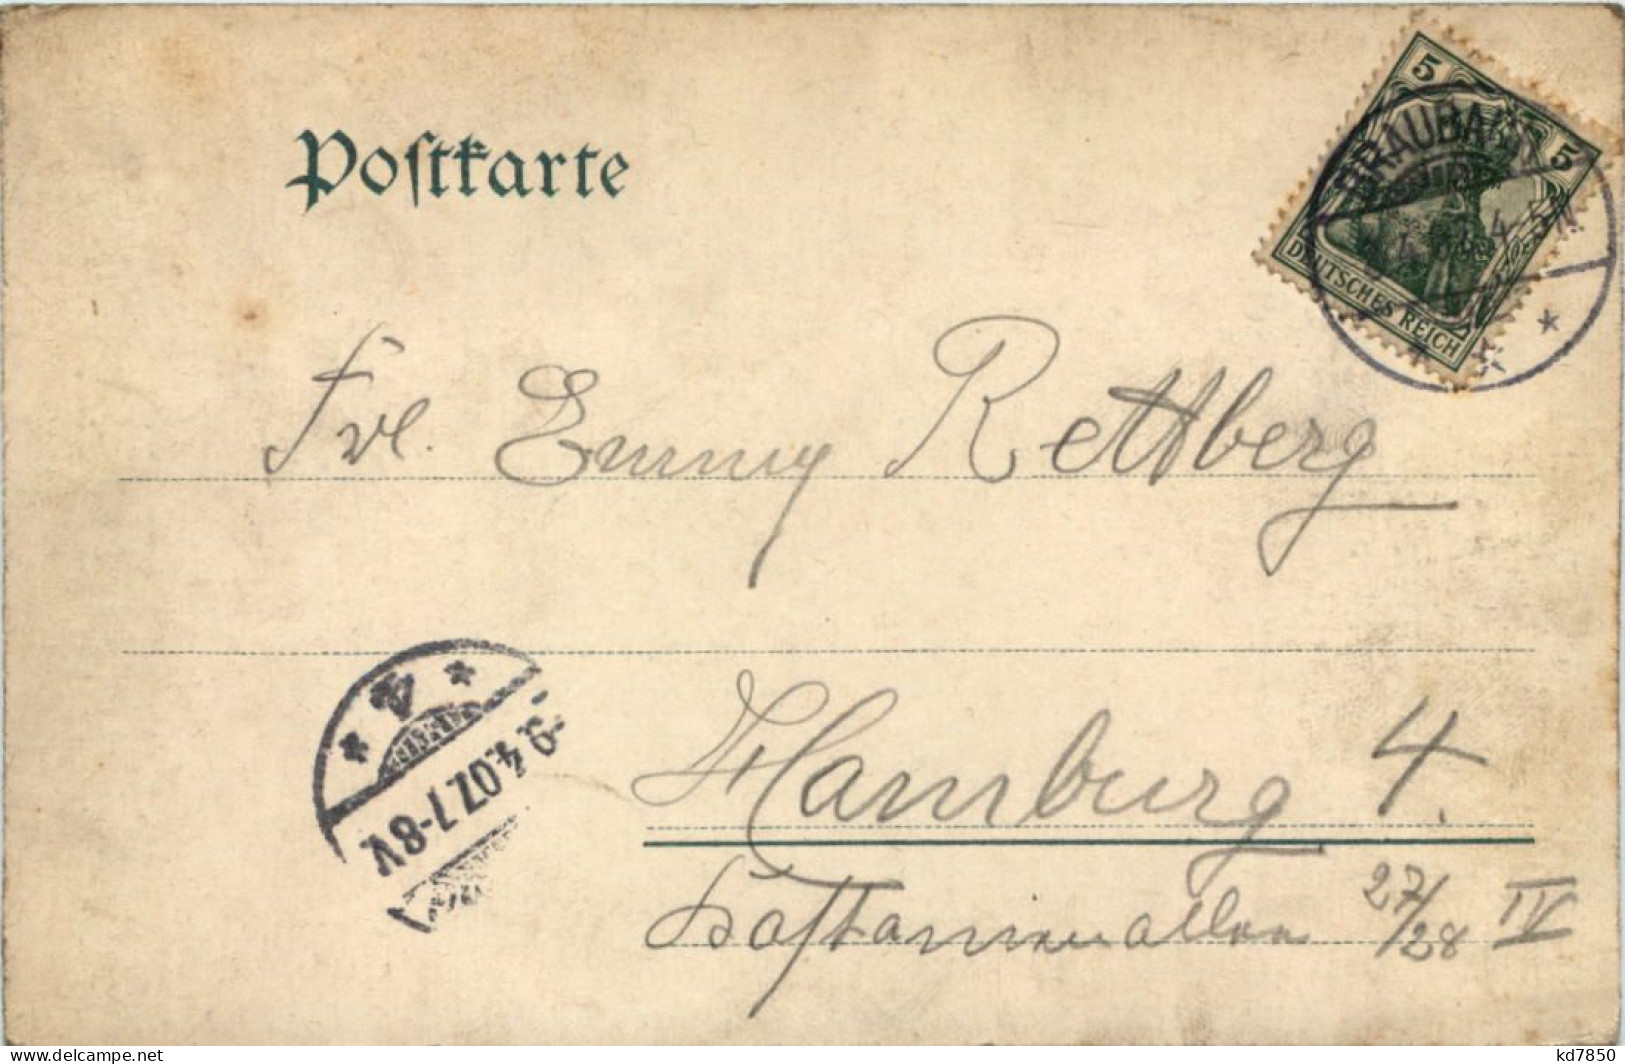 Postkarte
5 5
DEUTSCHES REICH
BRAUBACH
4-5N.
Frl. Emmy Rettberg
Hamburg 4.
Kastanienallee 27/28 IV
4
9.4.02.7-8V.
www.delcampe.net
kd7850